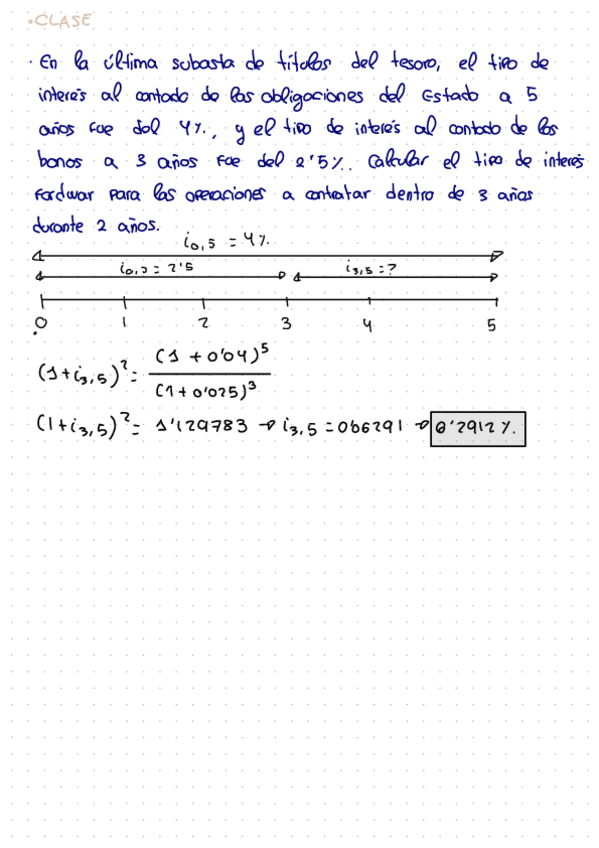 • CLASE
· En la última subasta de títulos del tesoro, el tipo de
interés al contado de las obligaciones del Estado a 5
años fue del 4%., y el tipo de interés al contado de los
bonos a 3 años fue del 2'5%. Calcular el tipo de interés
fordwar para las operaciones a contratar dentro de 3 años
durante 2 años.
i0,5 = 4%.
i0,3 = 2'5 i3,5 = ?
0 1 2 3 4 5
(1+i3,5)² = (1 + 0'04)⁵ / (1 + 0'025)³
(1+i3,5)² = 1'129783 → i3,5 = 006291 → 6'2912%.